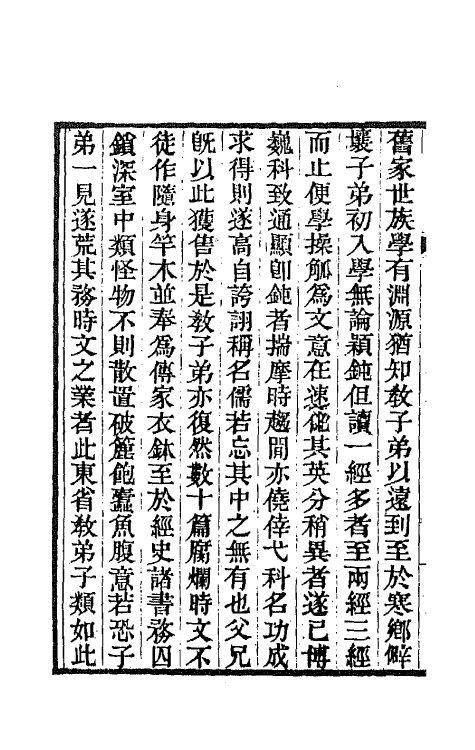 舊家世族學有淵源猶知敎子弟以遠到至於寒鄉僻
壤子弟初入學無論穎鈍但讀一經多者至兩經三經
而止便學操觚爲文意在速化其英分稍異者遂已博
巍科致通顯卽鈍者揣摩時趨間亦僥倖弋科名功成
求得則遂高自誇詡稱名儒若忘其中之無有也父兄
旣以此獲售於是敎子弟亦復然數十篇腐爛時文不
徒作隨身竿木並奉爲傳家衣鉢至於經史諸書務囚
鎖深室中類怪物不則散置破簏飽蠹魚腹意若恐子
弟一見遂荒其務時文之業者此東省敎弟子類如此